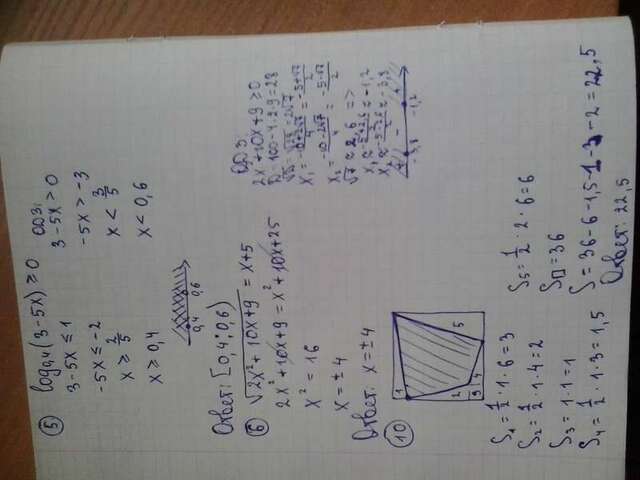 ⑤ log₀,₄(3-5x) ≥ 0
3-5x ≤ 1
-5x ≤ -2
x ≥ 2/5
x ≥ 0,4
ОДЗ:
3-5x > 0
-5x > -3
x < 3/5
x < 0,6
0,4 0,6
Ответ: [0,4; 0,6)
⑥ √(2x² + 10x + 9) = x+5
2x² + 10x + 9 = x² + 10x + 25
x² = 16
x = ±4
Ответ: x = ±4
ОДЗ:
2x² + 10x + 9 ≥ 0
D = 100 - 4·2·9 = 28
√D = √28 = 2√7
x₁ = (-10+2√7)/4 = (-5+√7)/2
x₂ = (-10-2√7)/4 = (-5-√7)/2
√7 ≈ 2,6 =>
x₁ ≈ (-5+2,6)/2 ≈ -1,2
x₂ ≈ (-5-2,6)/2 ≈ -3,8
+ - +
-3,8 -1,2
⑩
1
2 5
3 4
S₁ = 1/2 · 1 · 6 = 3
S₂ = 1/2 · 1 · 4 = 2
S₃ = 1 · 1 = 1
S₄ = 1/2 · 1 · 3 = 1,5
S₅ = 1/2 · 2 · 6 = 6
S□ = 36
S = 36 - 6 - 1,5 - 1 - 3 - 2 = 22,5
Ответ: 22,5